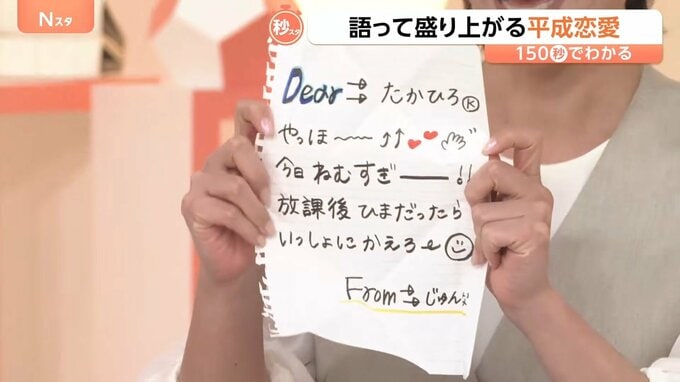 Nスタ
秒スタ
語って盛り上がる平成恋愛
150秒でわかる
Dear⇉たかひろⓀ
やっほ〜〜〜↑↑
今日ねむすぎー!!
放課後ひまだったら
いっしょにかえろ〜
From⇉じゅん